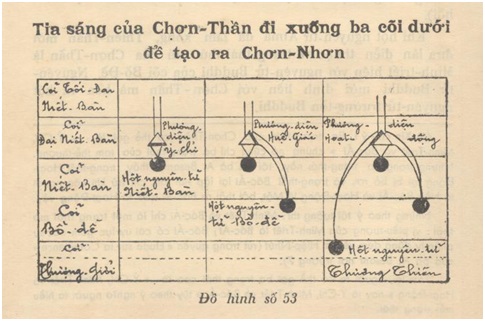 Tia sáng của Chơn-Thần đi xuống ba cõi dưới
để tạo ra Chơn-Nhơn
Cõi Tối-Đại
Niết-Bàn
Cõi
Đại Niết-Bàn
Phương-
diện
Ý-Chí
Phương-diện
Huệ-Giác
Phương-
Hoạt-
diện
động
Cõi
Niết-Bàn
Một nguyên-tử
Niết-Bàn
Cõi
Bồ-đề
Một nguyên-
tử Bồ-đề
Cõi
Thượng-Giới
Một nguyên-tử
Thượng Thiên
Đồ hình số 53